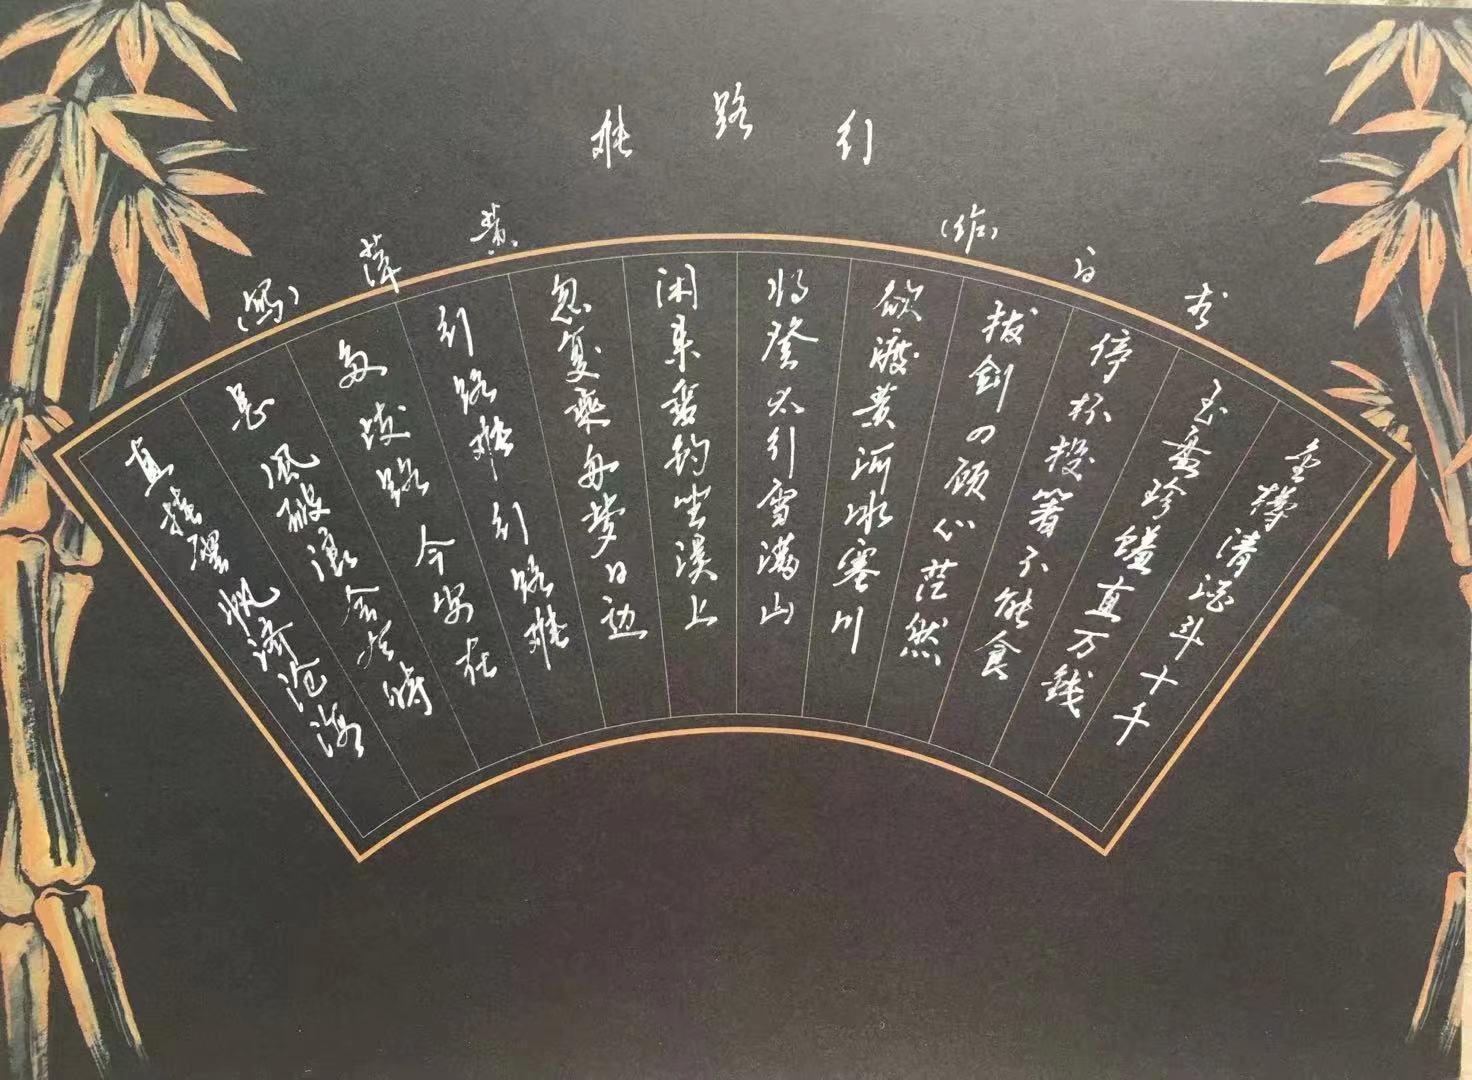 行路难
李白(作)
金樽清酒斗十千
玉盘珍馐直万钱
停杯投箸不能食
拔剑四顾心茫然
欲渡黄河冰塞川
将登太行雪满山
闲来垂钓坐溪上
忽复乘舟梦日边
行路难行路难
多歧路今安在
长风破浪会有时
直挂云帆济沧海
黄萍(写)